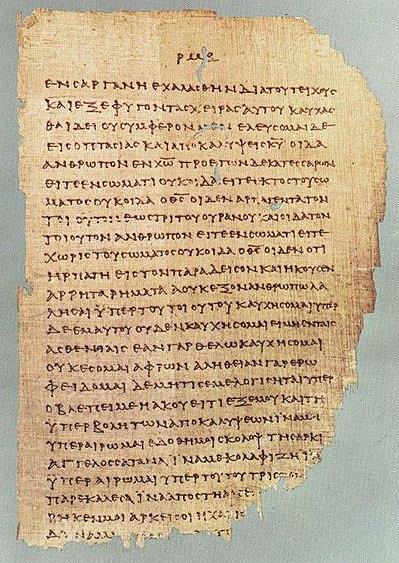 ΕΝϹΑΡΓΑΝΗΕΧΑΛΑϹΘΗΝΔΙΑΤΟΥΤΕΙΧΟΥϹ
ΚΑΙΕΞΕΦΥΓΟΝΤΑϹΧΕΙΡΑϹΑΥΤΟΥΚΑΥΧΑϹ
ΘΑΙΔΕΙΟΥϹΥΜΦΕΡΟΝ ΕΛΕΥϹΟΜΑΙΔΕ
ΕΙϹΟΠΤΑϹΙΑϹΚΑΙΑΠΟΚΑΛΥΨΕΙϹΚ̅Υ̅ ΟΙΔΑ
ΑΝΘΡΩΠΟΝΕΝΧ̅Ω̅ ΠΡΟΕΤΩΝΔΕΚΑΤΕϹϹΑΡΩΝ
ΕΙΤΕΕΝϹΩΜΑΤΙΟΥΚΟΙΔΑΕΙΤΕΕΚΤΟϹΤΟΥϹΩ
ΜΑΤΟϹΟΥΚΟΙΔΑ Ο Θ̅Ϲ̅ ΟΙΔΕΝΑΡΠΑΓΕΝΤΑΤΟΝ
ΤΟΙΟΥΤΟΝΕΩϹΤΡΙΤΟΥΟΥΡΑΝΟΥΚΑΙΟΙΔΑΤΟΝ
ΤΟΙΟΥΤΟΝΑΝΘΡΩΠΟΝΕΙΤΕΕΝϹΩΜΑΤΙΕΙΤΕ
ΧΩΡΙϹΤΟΥϹΩΜΑΤΟϹΟΥΚΟΙΔΑ Ο Θ̅Ϲ̅ ΟΙΔΕΝΟΤΙ
ΗΡΠΑΓΗΕΙϹΤΟΝΠΑΡΑΔΕΙϹΟΝΚΑΙΗΚΟΥϹΕΝ
ΑΡΡΗΤΑΡΗΜΑΤΑΑΟΥΚΕΞΟΝΑΝΘΡΩΠΩΛΑ
ΛΗϹΑΙΫΠΕΡΤΟΥΤΟΙΟΥΤΟΥΚΑΥΧΗϹΟΜΑΙΥΠΕΡ
ΔΕΕΜΑΥΤΟΥΟΥΔΕΝΚΑΥΧΗϹΟΜΑΙΕΙΜΗΕΝΤΑΙϹ
ΑϹΘΕΝΕΙΑΙϹΕΑΝΓΑΡΘΕΛΩΚΑΥΧΗϹΟΜΑΙ
ΟΥΚΕϹΟΜΑΙΑΦΡΩΝΑΛΗΘΕΙΑΝΓΑΡΕΡΩ
ΦΕΙΔΟΜΑΙΔΕΜΗΤΙϹΕΜΕΛΟΓΙϹΗΤΑΙΥΠΕΡ
ΟΒΛΕΠΕΙΜΕΗΑΚΟΥΕΙΤΙΕΞΕΜΟΥΚΑΙΤΗ
ΫΠΕΡΒΟΛΗΤΩΝΑΠΟΚΑΛΥΨΕΩΝΪΝΑΜΗ
ΥΠΕΡΑΙΡΩΜΑΙΕΔΟΘΗΜΟΙϹΚΟΛΟΨΤΗϹΑΡΚΙ
ΑΓΓΕΛΟϹϹΑΤΑΝΑΪΝΑΜΕΚΟΛΑΦΙΖΗΪΝΑ
ΫΠΕΡΑΙΡΩΜΑΙΥΠΕΡΤΟΥΤΟΥΤΡΙϹ
ΠΑΡΕΚΑΛΕϹΑΪΝΑΑΠΟϹΤΗ
ΡΗΚΕΝΜΟΙΑΡΚΕΙϹΟΙΗΧΑΡΙϹ
ΔΥΝΑΜ